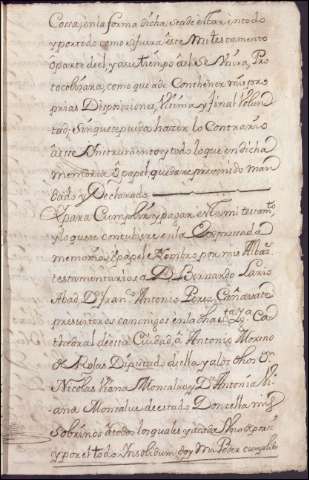 Cossa, en la forma dicha, se ha de estar en todo
y por todo como si fuera este Mi testamento
o parte de el, y a su tiempo a el se Unira, Pro
tocolizara, como que a de Conthener mis pro
prias Disposiciones, Ultima y final Volun
tad; Sin que se pueda hazer lo Contrario
a este Ynstrumento y todo lo que en dicha
memoria, o papel quedare prevenido man
dado y Declarado
Y para Cumplir y pagar este mi testamto
y lo que se contubiere en la Expressada
memoria, o papel Nombro por mis Albas
testamentarios a D. Bernardo Lario
Abad D. Fran Antonio Perez
presviteros canonigos en la dha Sta Ya Ca
thedral de esta Ciudad, a Antonio Moreno
de Rolas Diputado de ella y a los
Nicolas Viana Moncalue y Da Antonia Vi
ana Moncalue de estado Doncella mis
Sobrinos a todos los quales y a cada Uno
y por el todo Insolidum, doy mi Poder cumplido